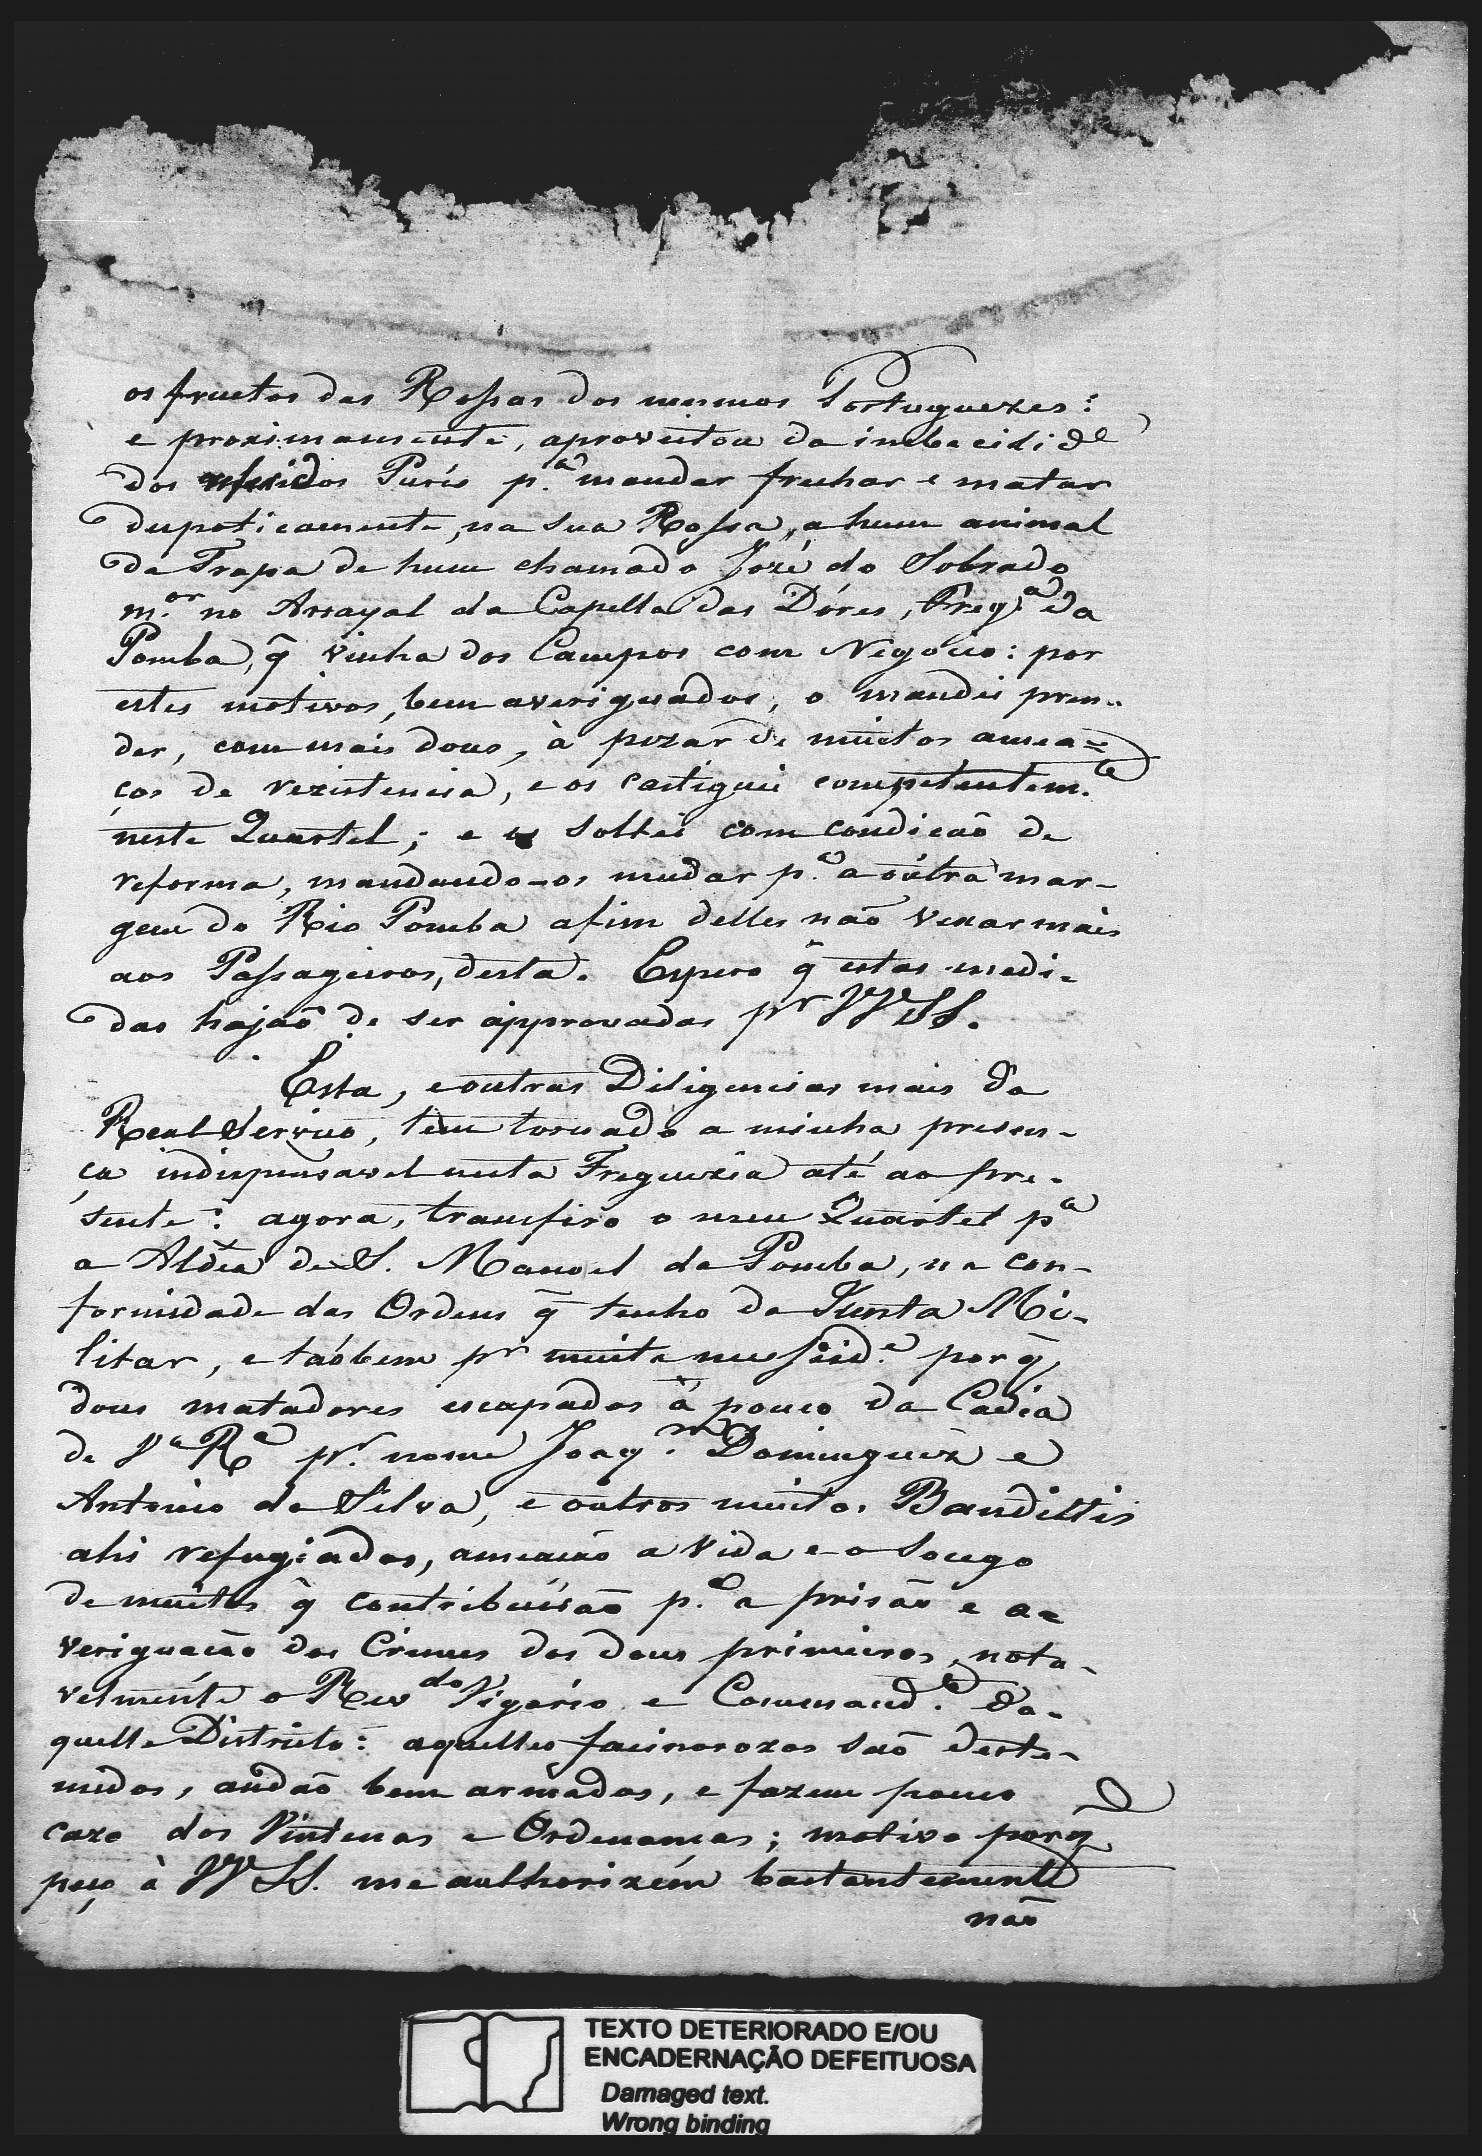 os fructos das Rossas dos mesmos Portuguezes:
e proximamente, aproveitou da imbecilid.e
dos referidos Purís p.a mandar frechar e matar
despoticamente, na sua Rossa, a hum animal
da Tropa de hum chamado Jozé do Sobrado
m.or no Arrayal da Capella das Dóres, Freg.a da
Pomba, q̃ vinha dos Campos com Negocio: por
estes motivos, bem averiguados, o mandei pren-
der, com mais dous, à pezar de muitos amea=
ços de rezistencia, e os castiguei competentem.te
neste Quartel; e os soltei com condicaõ de
reforma, mandando-os mudar p.a a oútra mar-
gem do Rio Pomba afim delles naõ vexar mais
aos Passageiros, desta. Espero q̃ estas medi-
das hajaõ de ser approvadas pr VVSS.
Esta, e outras Diligencias mais do
Real Serviço, tem tornado a minha presen-
ça indispensavel nesta Freguezia até ao pre-
sente: agora, transfiro o meu Quartel p.a
a Aldea de S. Manoel da Pomba, na con-
formidade das Ordens q̃ tenho da Junta Mi-
litar, e taõbem pr muita necessid.e por q̃
dous matadores escapados à pouco da Cadia
de Va Ra pr. nome Joaq.m Dominguez e
Antonio da Silva, e outros muitos Bandittis
ahi refugiados, ameação a vida e o socego
de muitos q̃ contribuisaõ p.a a prisaõ e a=
veriguação dos Crimes dos dous primeiros, nota-
velmente o Revdo Vigario e Command.e da-
quelle Districto: aquelles facinorozos saõ deste-
midos, andaõ bem armados, e fazem pouco
cazo dos Vintenas e Ordenanças; motivo porq̃
peço à VVSS. me authorizem bastantemente
naõ
TEXTO DETERIORADO E/OU
ENCADERNAÇÃO DEFEITUOSA
Damaged text.
Wrong binding